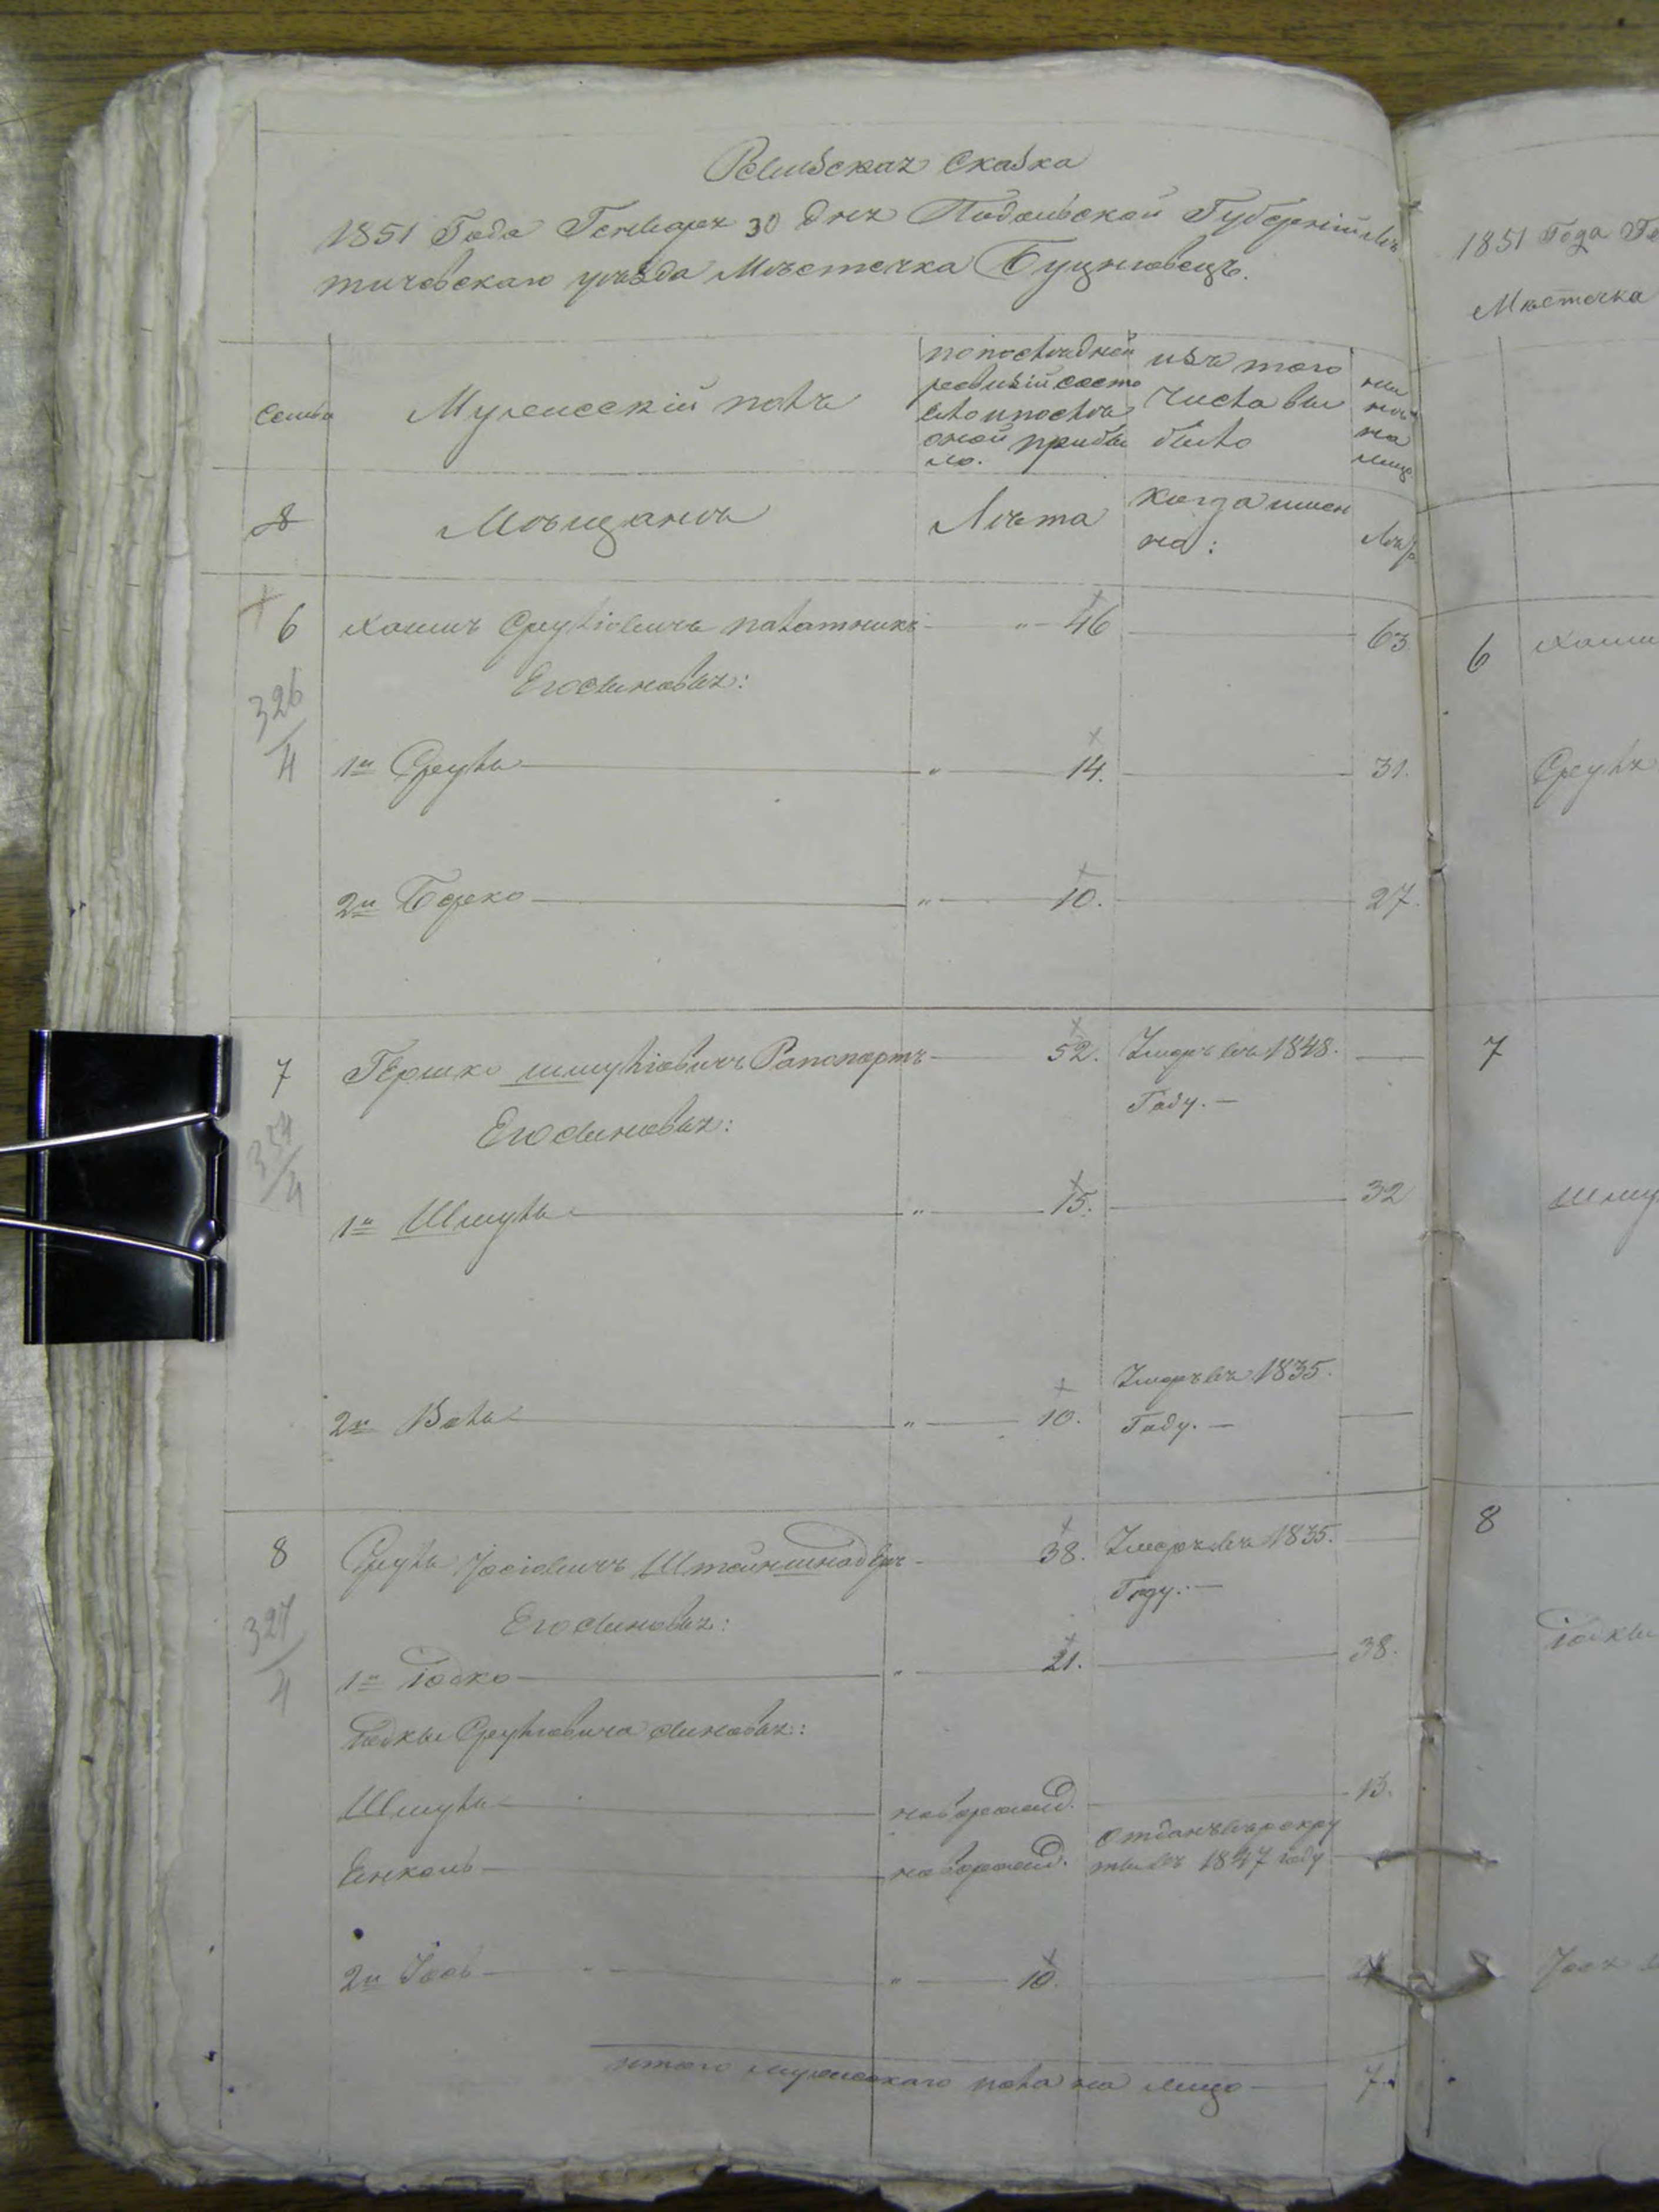 Ревизская Сказка
1851 Года Генваря 30 дня Подольской Губерніи Ле
тичевскаго уѣзда Мѣстечка Буцновецъ.
Семьи
Мужескій полъ
по послѣдней
ревизіи состо
яло и послѣ
оной прибы
ло.
изъ того
числа вы
было
ны
нѣ
на
лицо
8
Мѣщанѣ
Лѣта
Когда имен
но:
Лѣта
6 Хаимъ Сруліовичъ Палатникъ — " — 46 — 63
Его синовья:
326/4
1й Сруль — " — 14. — 31.
2й Берко — " — 10. — 27.
7 Гершко Шмуліовичъ Рапопортъ — 52. Умеръ въ 1848.
Году. —
Его синовья:
334/4
1й Шмуль — " — 15. — 32
2й Волъ — " — 10. Умеръ въ 1835.
Году. —
8 Сруль Іосіовичъ — 38. Умеръ въ 1835.
Году. —
Его синовья:
327/4
1й Іоско — " — 21. — 38.
Іоскы Сруліовича синовья:
Шмуль — новорожд. — 13.
Енколь — новорожд. Отданъ въ рекру
ты въ 1847 году
2й Іось — " — 10. —
итого мужескаго пола на лицо — 7.
1851 Года Ге
Мѣстечка
6 Хаим
Сруля
7
Шму
8
Іоскы